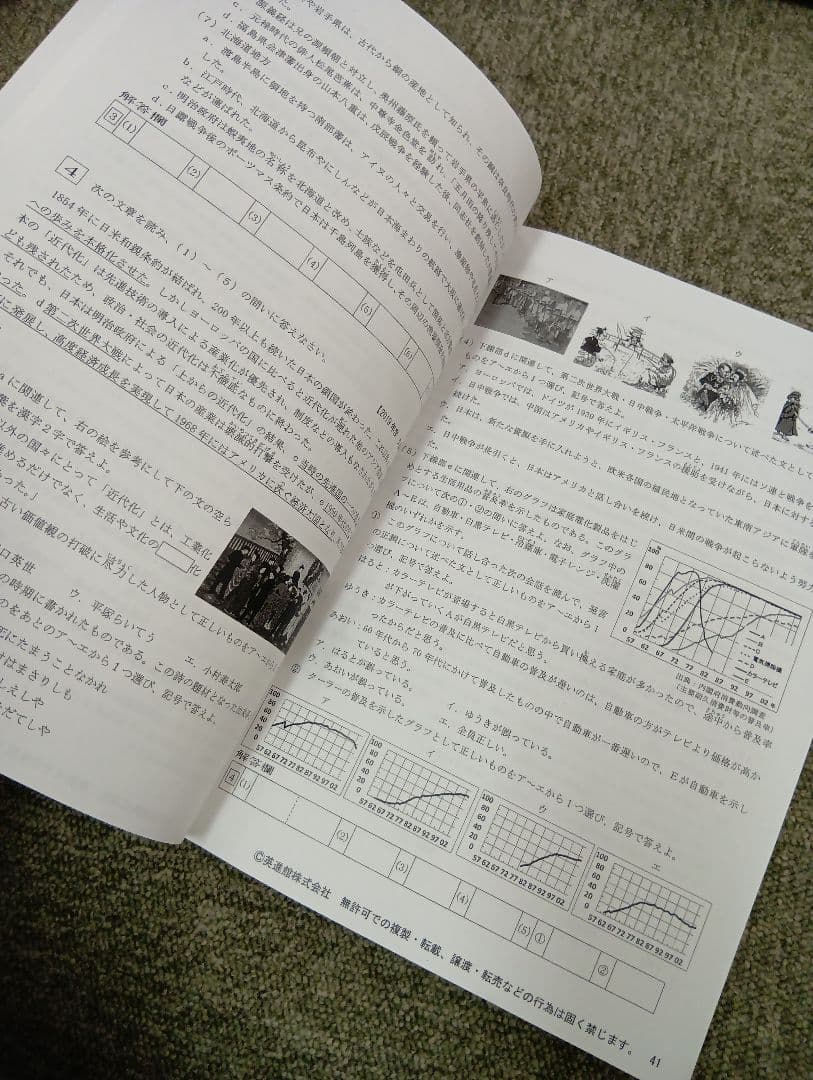 や岩手県は、古代から鉄の産地として知られ、その鉄は
源義経は兄の源頼朝と対立し、奥州藤原氏を頼って岩手県の平泉に
c．元禄時代の俳人松尾芭蕉は、中尊寺金色堂を訪れ、「五月雨の降り残し
d．福島県会津藩出身の山本八重は、戊辰戦争を経験した後、同志社を創始した
(7) 北海道地方
a．渡島半島に領地を持つ南部藩は、アイヌの人々と交易を行い、
した。
b．江戸時代、北海道から昆布やにしんなどが日本海まわりの航路で大阪に
などが運ばれた。
c．明治政府は蝦夷地の名称を北海道と改め、士族などを屯田兵として
d．日露戦争後のポーツマス条約で日本は千島列島を獲得し、その周辺の
解答欄
3 (1) (2) (3) (4) (5) (6)
4 次の文章を読み、(1)～(5)の問いに答えなさい。
1854年に日米和親条約が結ばれ、200年以上も続いた日本の鎖国が終わった。
への歩みを本格化させた。しかしヨーロッパの国に比べると近代化が遅れた
本の「近代化」は先進技術の導入による産業化が優先され、制度などの導入も
ども残されたため、政治・社会の近代化は不徹底なものに終わった。
それでも、日本は明治政府による「上からの近代化」の結果、c当時の先進国の一つ
った。d第二次世界大戦によって日本の産業は壊滅的打撃を受けたが、
に発展し、高度経済成長を実現して1968年にはアメリカに次ぐ経済大国
aに関連して、右の絵を参考にして下の文の空ら
葉を漢字2字で答えよ。
以外の国々にとって「近代化」とは、工業化
進めるだけでなく、生活や文化の 化
あった。」
古い価値観の打破に尽力した人物として正しいものをア～エから
口英世 ウ．平塚らいてう エ．小村寿太郎
の時期に書かれたものである。この詩の題材となった
のをあとのア～エから1つ選び、記号で答えよ。
死にたまうことなかれ
けはまさりしも
えしや
だてしや
ア イ ウ
(4) 下線部dに関連して、第二次世界大戦・日中戦争・太平洋戦争について述べた文として
ものをア～エから1つ選び、記号で答えよ。
ア．ヨーロッパでは、ドイツが1939年にイギリス・フランスと、1941年にはソ連と戦争を
イ．日中戦争では、中国はアメリカやイギリス・フランスの援助を受けながら、日本に対する
続けた。
ウ．日本は、新たな資源を手に入れようと、欧米各国の植民地となっていた東南アジアに
エ．日中戦争が長引くと、日本はアメリカと話し合いを続け、日米間の戦争が起こらないよう努力
(5) 下線部eに関連して、右のグラフは家庭電化製品をはじ
めとする生活用品の普及率を示したものである。このグラフ
について次の①・②の問いに答えよ。なお、グラフ中の
A～Eは、自動車・白黒テレビ・冷蔵庫・電子レンジ・洗濯
機のいずれかを示す。
① このグラフについて話し合った次の会話を読んで、発言
の正誤について述べた文として正しいものをア～エから1
つ選び、記号で答えよ。
はると：カラーテレビが登場すると白黒テレビから買い換える家庭が多かったので、途中から普及率
が下がっていく人が白黒テレビだと思う。
ゆうき：カラーテレビの普及に比べて自動車の普及が遅いのは、自動車の方がテレビより価格が高か
ったからだと思う。
あおい：60年代から70年代にかけて普及したものの中で自動車が一番遅いので、Eが自動車を示し
ていると思う。
ア．はるとが誤っている。 イ．ゆうきが誤っている。
ウ．あおいが誤っている。 エ．全員正しい。
② クーラーの普及を示したグラフとして正しいものをア～エから1つ選び、記号で答えよ。
%
100
80
60
40
20
0
57 62 67 72 77 82 87 92 97 02 年
A
B
C
電気掃除機
D
カラーテレビ
E
出典：内閣府消費動向調査
（主要耐久消費財等の普及率）
ア
100
80
60
40
20
0
57 62 67 72 77 82 87 92 97 02
イ
100
80
60
40
20
0
57 62 67 72 77 82 87 92 97 02
ウ
100
80
60
40
20
0
57 62 67 72 77 82 87 92 97 02
エ
100
80
60
40
20
0
57 62 67 72 77 82 87 92 97 02
解答欄
4 (1) (2) (3) (4) (5) ① ②
©英進館株式会社 無許可での複製・転載、譲渡・転売などの行為は固く禁じます。
41